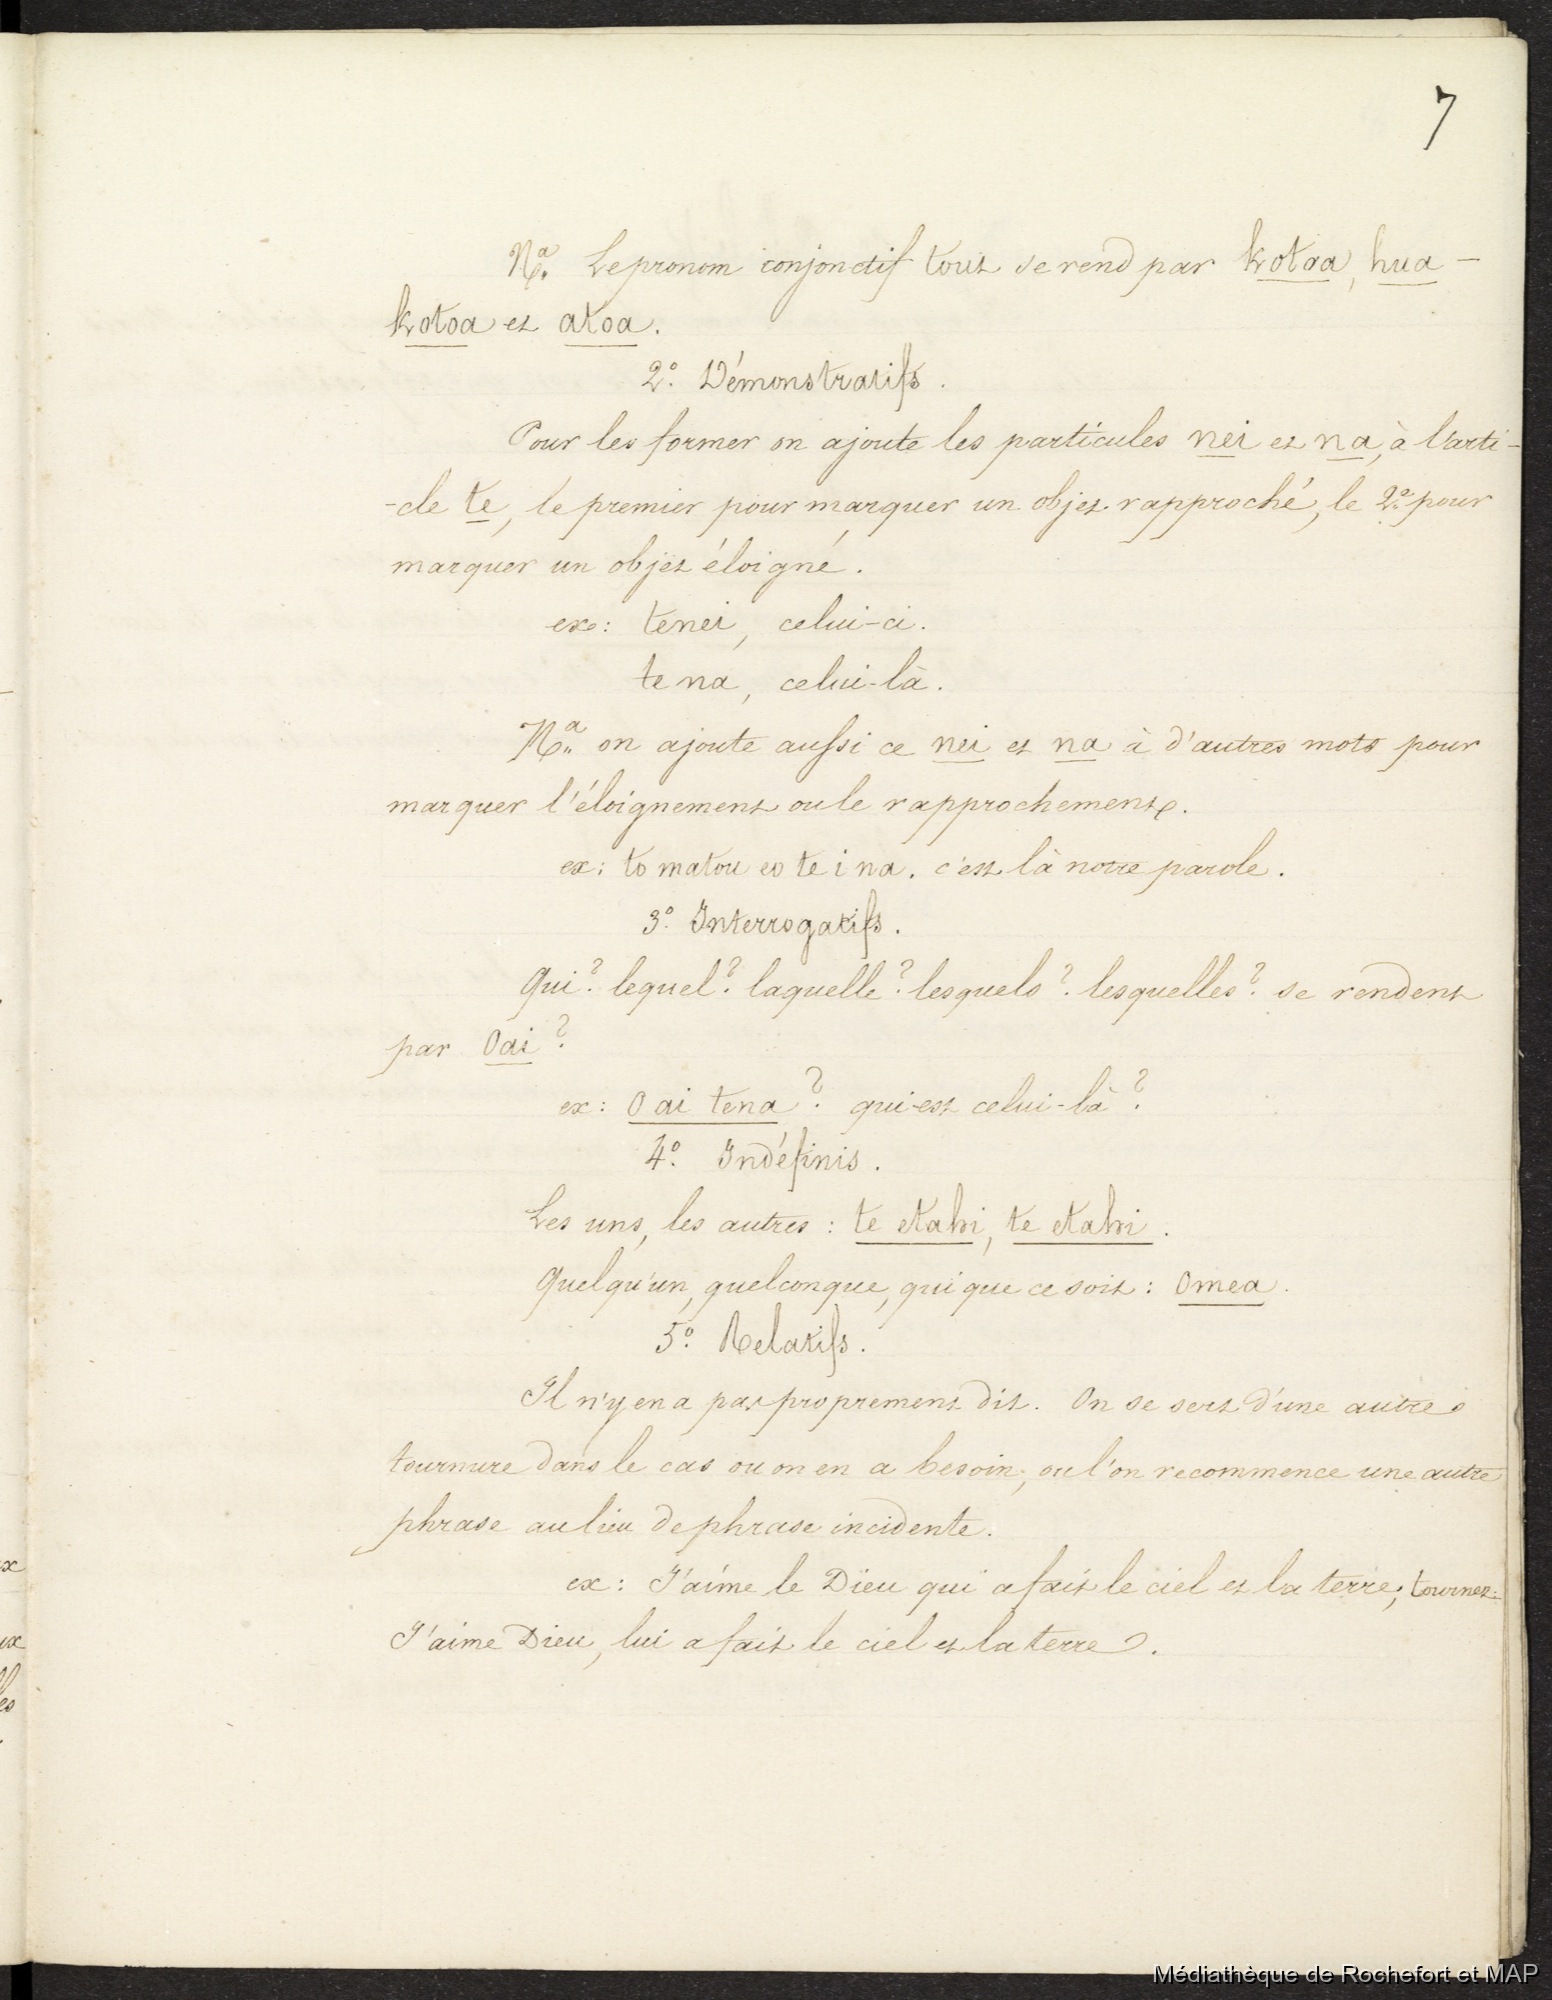 7
Na. Le pronom conjonctif tout se rend par kotoa, hua-
kotoa et atoa.
2º. Démonstratifs.
Pour les former on ajoute les particules nei et na, à l'arti-
-cle te, le premier pour marquer un objet rapproché, le 2e. pour
marquer un objet éloigné.
ex: tenei, celui-ci.
te na, celui-là.
Na. on ajoute aussi ce nei et na à d'autres mots pour
marquer l'éloignement ou le rapprochement.
ex: to matou eo te i na. c'est là notre parole.
3º. Interrogatifs.
Qui? lequel? laquelle? lesquels? lesquelles? se rendent
par Oai?
ex: O ai tena? qui est celui-là?
4º. Indéfinis.
Les uns, les autres: te etahi, te etahi.
Quelqu'un, quelconque, qui que ce soit: Omea.
5º. Relatifs.
Il n'y en a pas proprement dit. On se sert d'une autre
tournure dans le cas ou on en a besoin; ou l'on recommence une autre
phrase au lieu de phrase incidente.
ex: J'aime le Dieu qui a fait le ciel et la terre; tournez:
J'aime Dieu, lui a fait le ciel et la terre.
Médiathèque de Rochefort et MAP